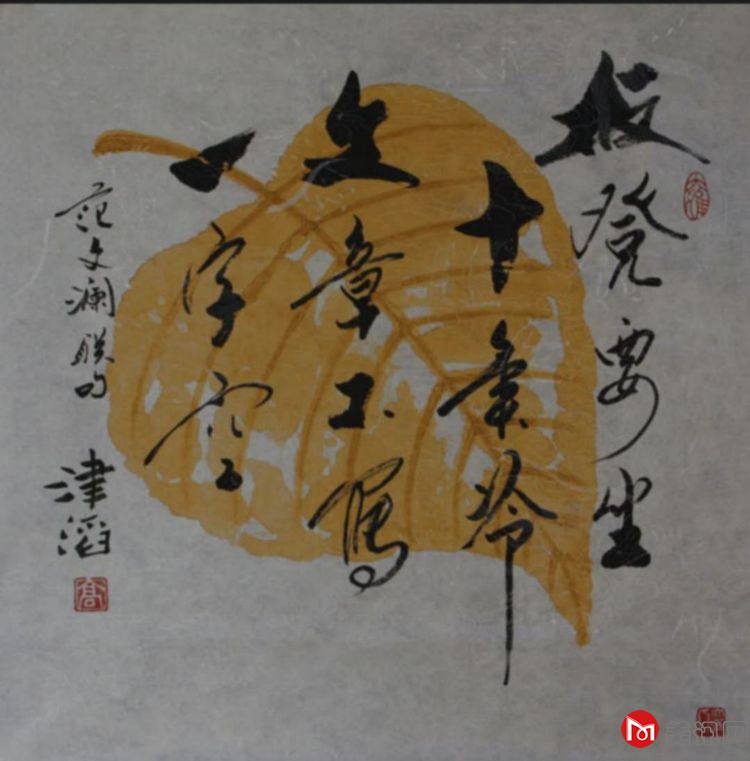 板凳要坐
十年冷
文章不写
一字空
范文澜联句
津滔
高